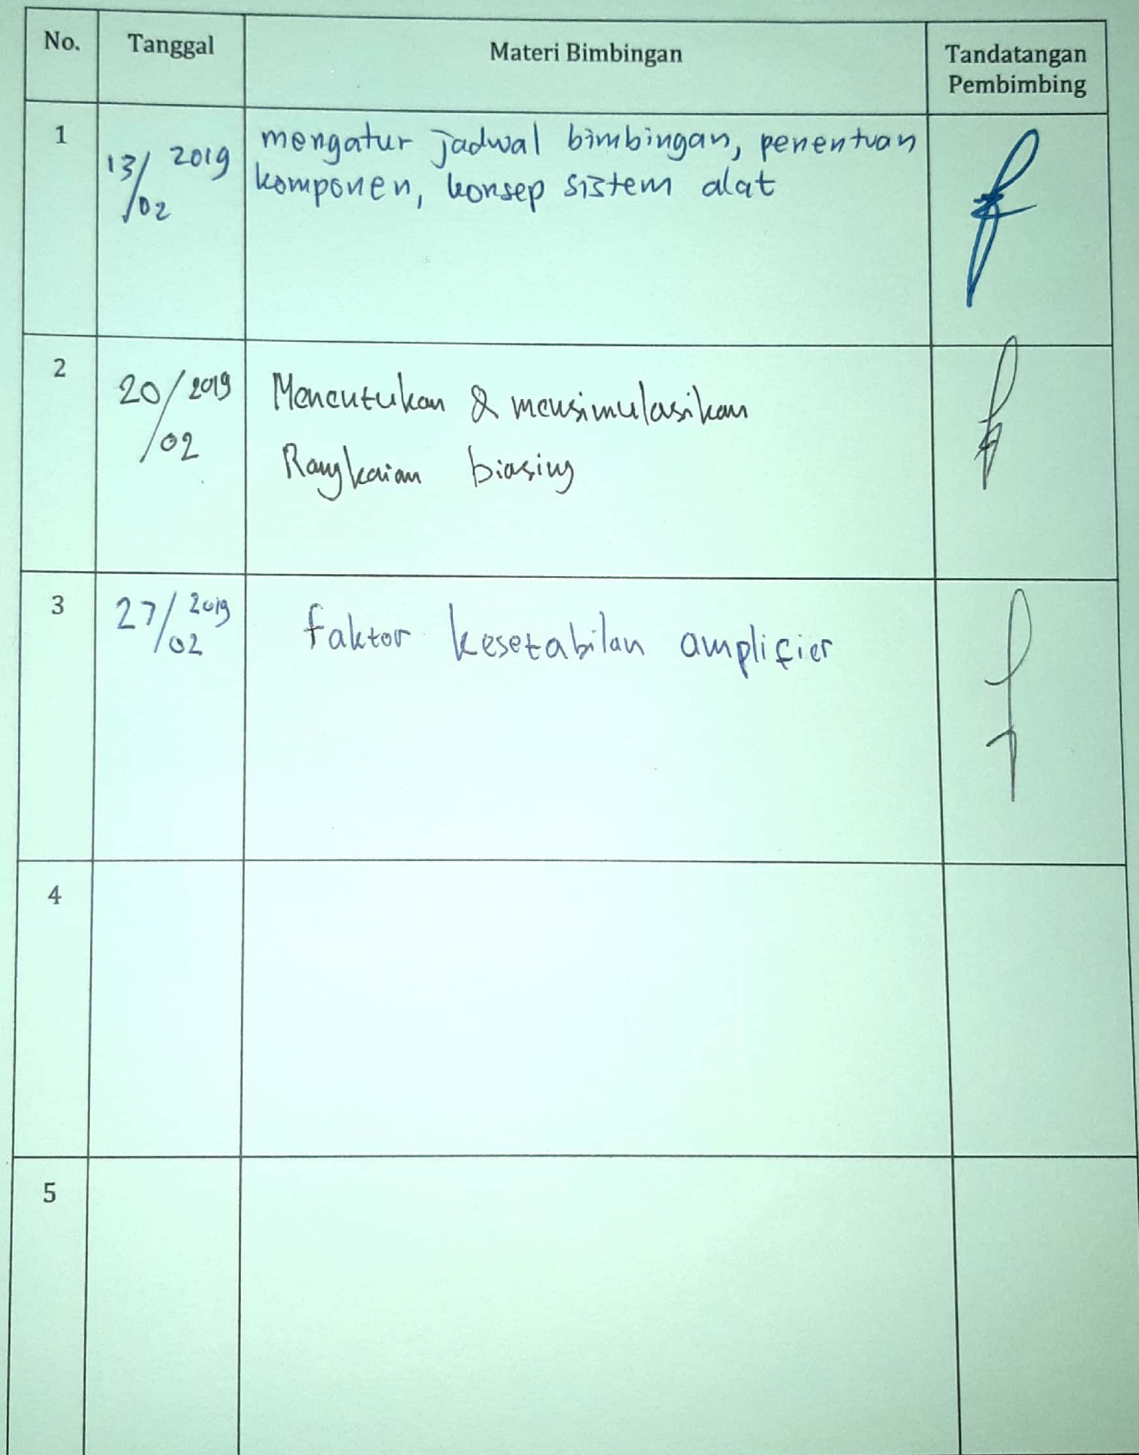 No. Tanggal Materi Bimbingan Tandatangan
Pembimbing
1
13/02 2019
mengatur jadwal bimbingan, penentuan
komponen, konsep sistem alat
2
20/02 2019
Menentukan & mensimulasikan
Rangkaian biasing
3
27/02 2019
faktor kesetabilan amplifier
4
5